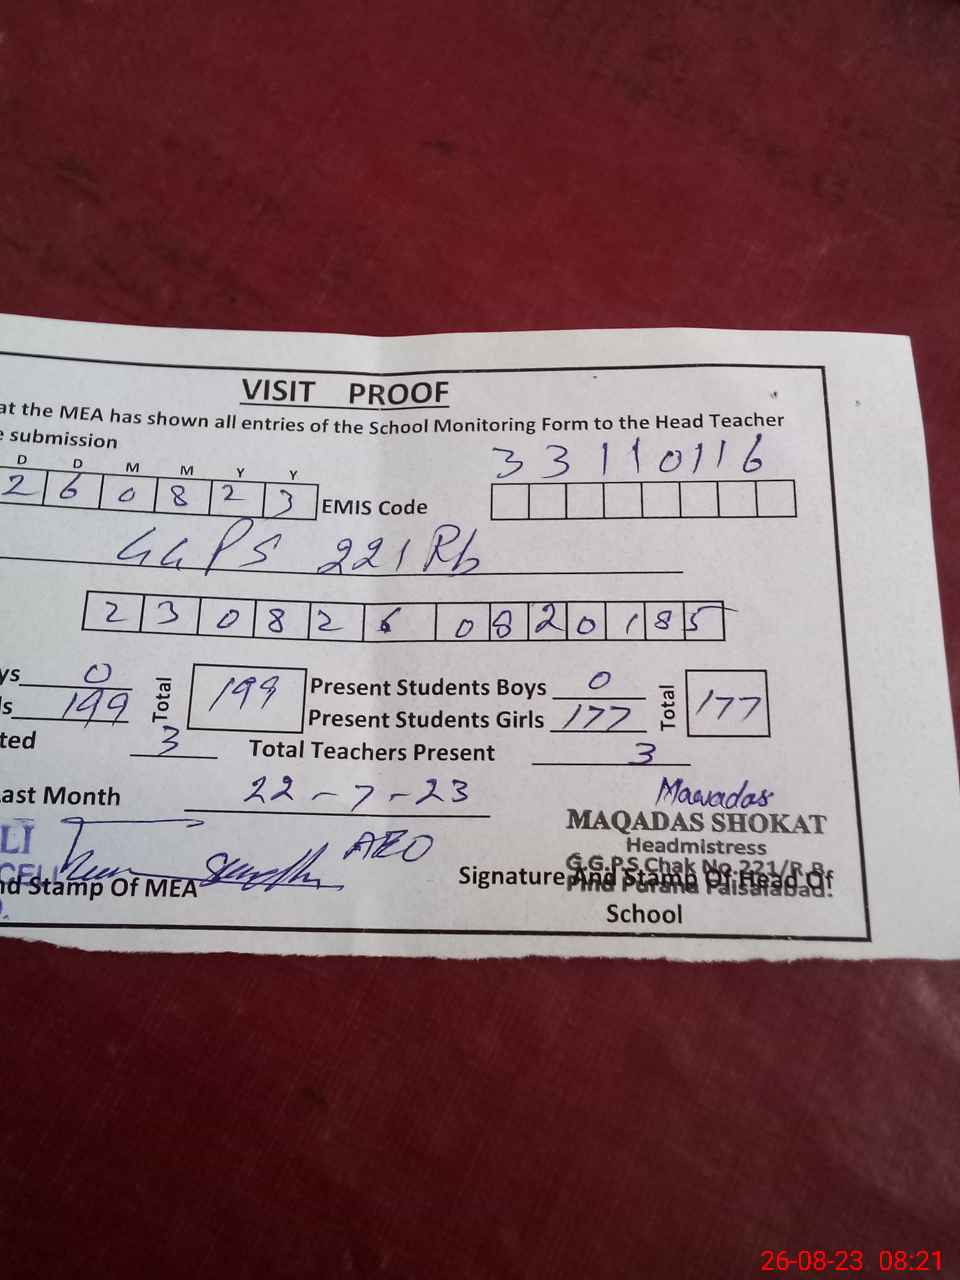 VISIT PROOF
at the MEA has shown all entries of the School Monitoring Form to the Head Teacher
e submission
D D M M Y Y
33110116
2 6 0 8 2 3 EMIS Code
GGPS 221 Rb
2 3 0 8 2 6 0 8 2 0 1 8 5
ys 0 Total 199 Present Students Boys 0 Total 177
ls 199 Present Students Girls 177
ted 3 Total Teachers Present 3
ast Month 22-7-23
Mawadas
MAQADAS SHOKAT
LI AEO Headmistress
CELL G.G.P.S Chak No.221/R.B.
nd Stamp Of MEA Signature And Stamp Of Head Of
Pind Purana Faisalabad.
School
26-08-23 08:21